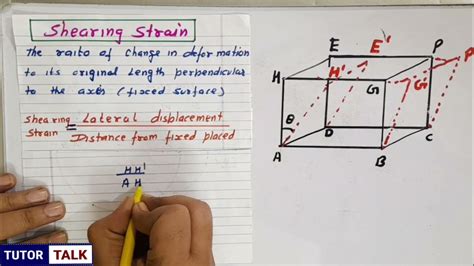 Shearing Strain
The raito of change in deformation
to its original Length perpendicular
to the axis (fixced surface)
Shearing Strain = Lateral displacement
Distance from fixed placed
HH'
AH
E E' P P'
H H' G G'
θ
A D B C
TUTOR TALK